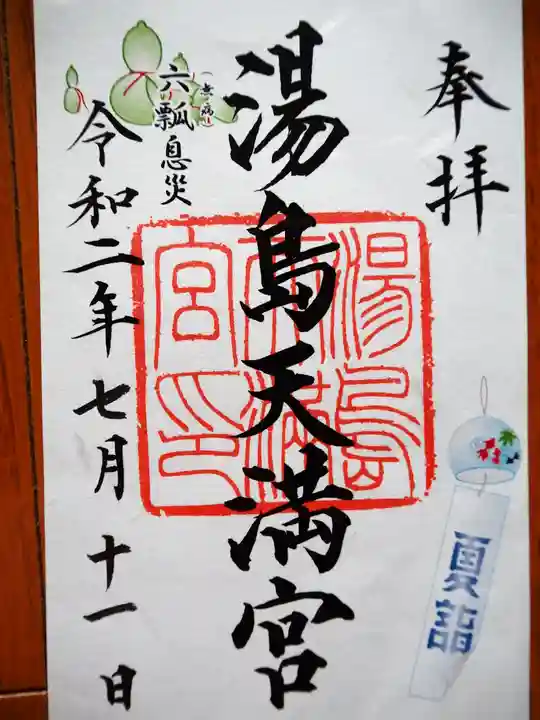 奉拝
湯島天満宮
湯島天満宮印
(無病)
六瓢息災
令和二年七月十一日
夏詣